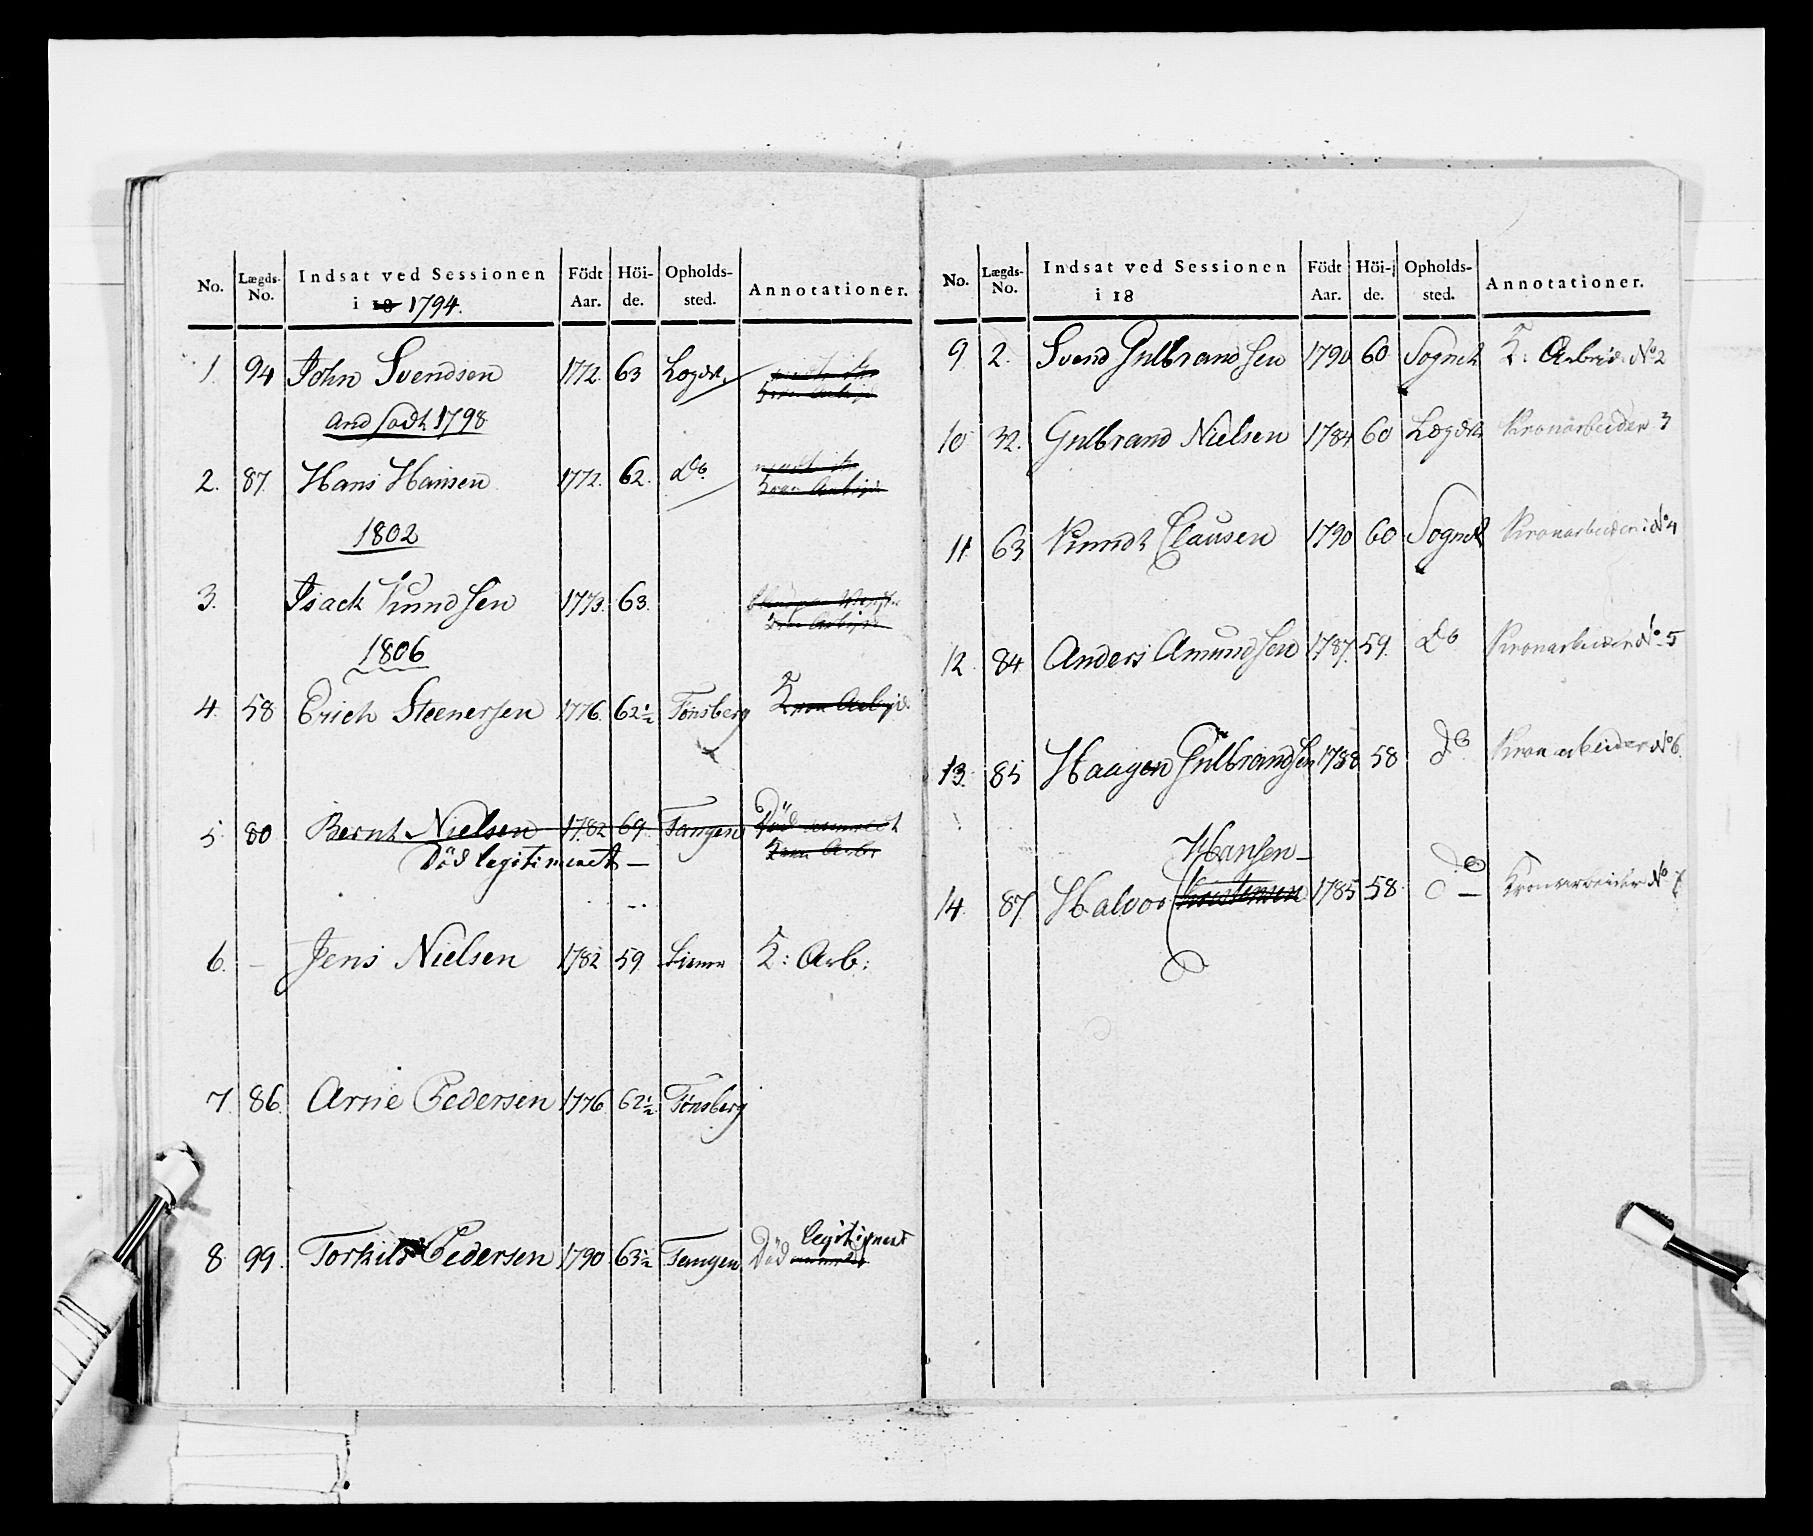 No. Lægds-No. Indsat ved Sessionen i 18 1794. Födt Aar. Höi-de. Opholds-sted. Annotationer.
1. 94 John Svendsen 1772. 63 Lægdet.
Kron Arbejd
And født 1798
2. 87. Hans Hansen 1772. 62. do.
Kron Arbejd
1802
3. Isack Knudsen 1773. 63.
Kron Arbejd
1806
4. 58 Erich Steenersen 1776. 62½ Tönsberg Kron Arbejd.
5 80 Bernt Nielsen 1782 69. Tangen Död
Död legitimeret — Kron Arb:
6. — Jens Nielsen 1782 59 K: Arb:
7. 86. Arne Pedersen 1776 62½ Tönsberg
legitimeret
8. 99. Torkild Pedersen 1790 63½ Tangen Död anmeldt
No. Lægds-No. Indsat ved Sessionen i 18 Födt Aar. Höi-de. Opholds-sted. Annotationer.
9 2. Svend Gulbrandsen 1790 60 Sognet K: Arbeid: No 2
10 32. Gulbrand Nielsen 1784 60 Lægdet Kronarbeider 3
11. 63 Knudt Clausen 1790 60 Sognet Kronarbeider No 4
12. 84 Anders Amundsen 1787. 59. do Kronarbeider No 5
13. 85 Haagen Gulbrandsen 1788 58 do Kronarbeider No 6.
Hansen —
14. 87 Halvor Christensen 1785 58. do — Kronarbeider No 7